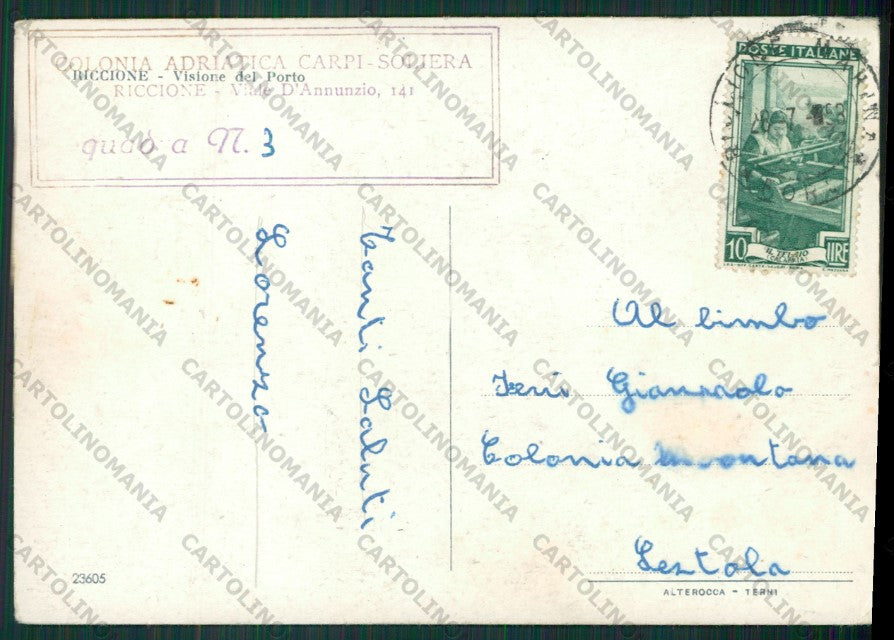 COLONIA ADRIATICA CARPI-SOLIERA
RICCIONE - Visione del Porto
RICCIONE - Viale D'Annunzio, 141
a N. 3
POSTE ITALIANE
10 LIRE
Tanti Saluti
Lorenzo
Al bimbo
Gianpaolo
Colonia Montana
Sestola
23605
ALTEROCCA - TERNI
CARTOLINOMANIA